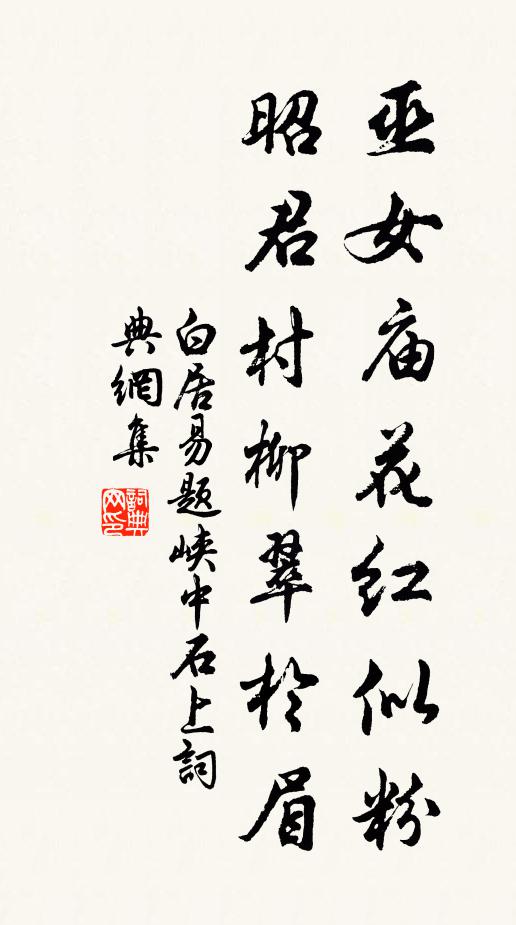 巫女庙花红似粉
昭君村柳翠於眉
白居易题峡中石上詞
典網集
詞典网印